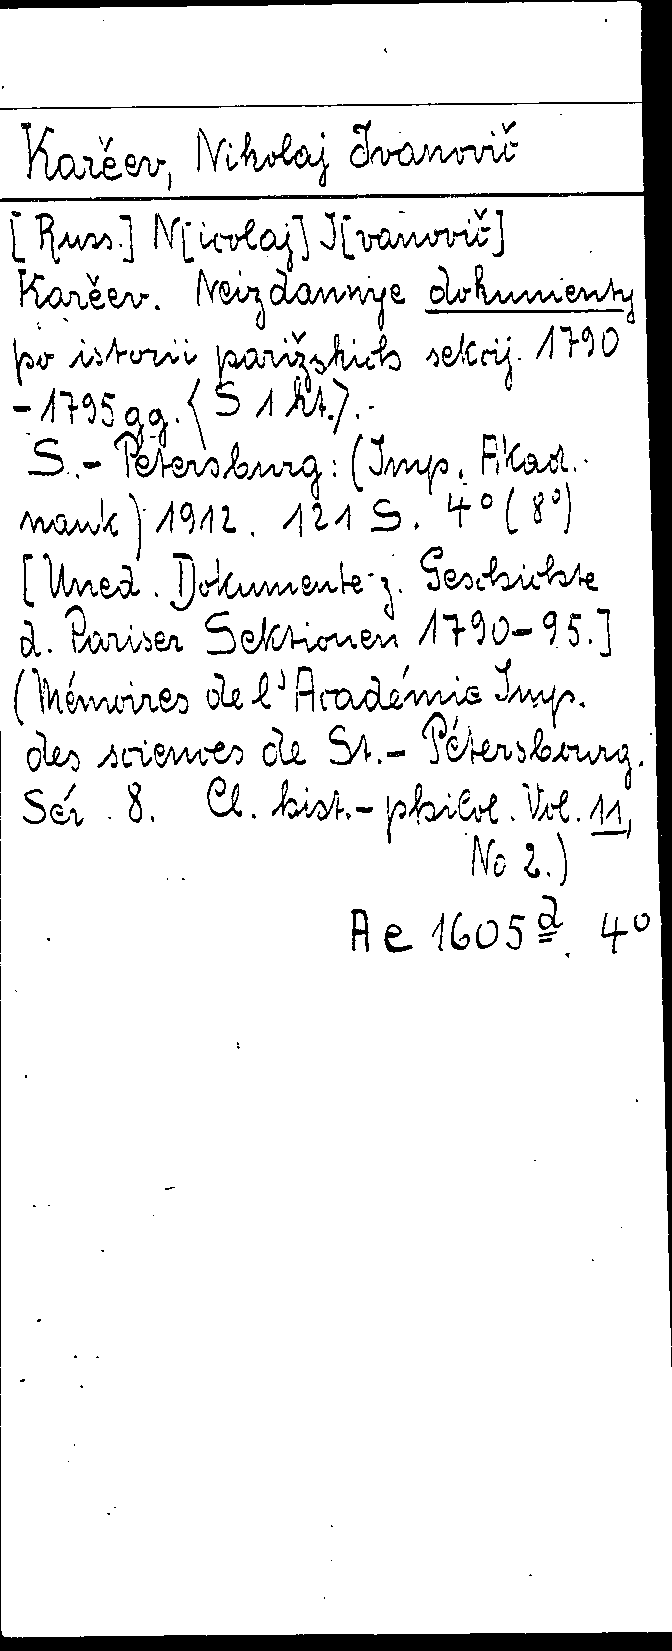 Karěev, Nikolaj Ivanovič
[Russ.] N[icolaj] I[vanovič]
Karěev. Neizdannye dokumenty
po istorii parižskich sekcij. 1790
-1795 gg. <S 1 kt.>.-
S.-Petersburg: (Imp. Akad.
nauk) 1912. 121 S. 4° (8°)
[Uned. Dokumente z. Geschichte
d. Pariser Sektionen 1790-95.]
(Mémoires de l'Académie Imp.
des sciences de St.-Pétersbourg.
Sér. 8. Cl. hist.-philol. Vol. 11,
No 2.)
Ae 1605 d. 4°